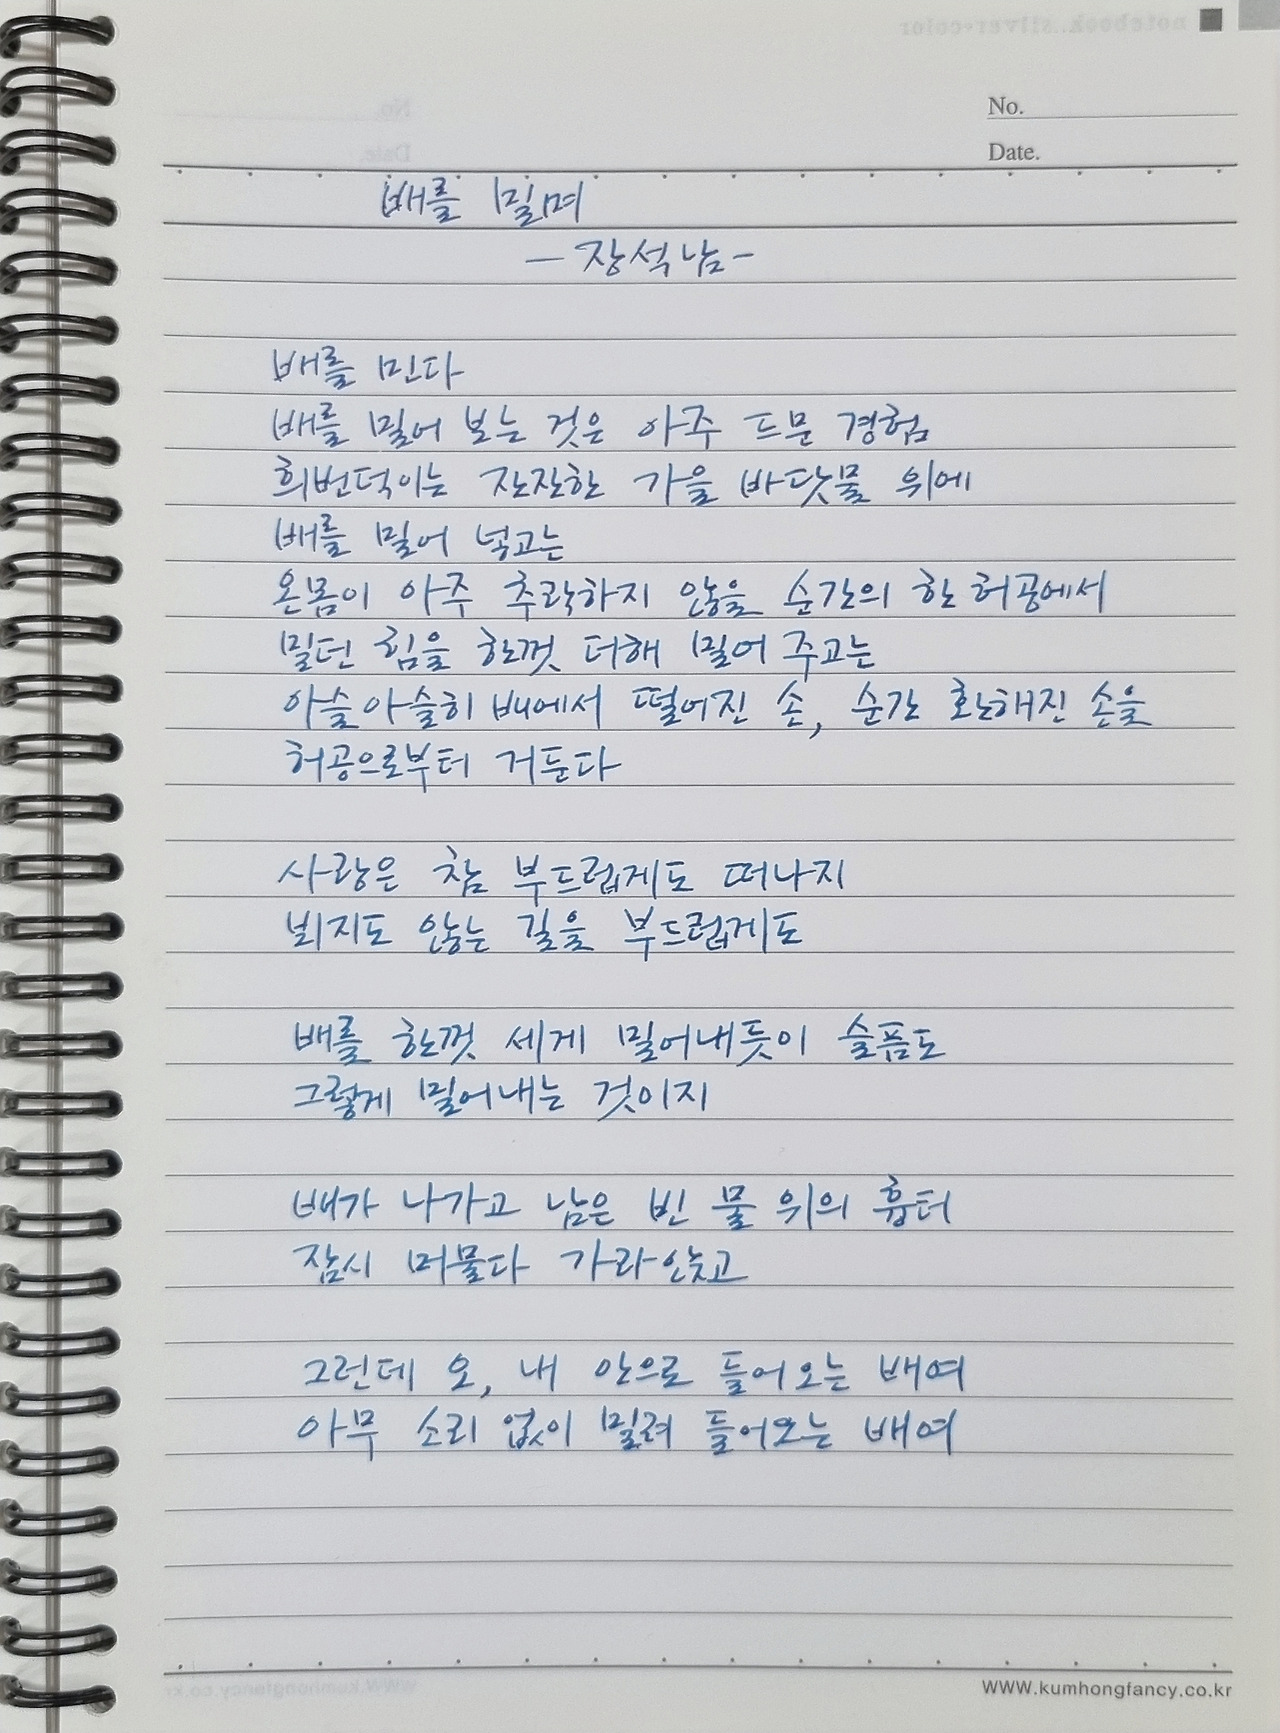 notebook..silver+color
No.
Date.
배를 밀며
- 장석남 -
배를 민다
배를 밀어 보는 것은 아주 드문 경험
희번덕이는 잔잔한 가을 바닷물 위에
배를 밀어 넣고는
온몸이 아주 추락하지 않을 순간의 한 허공에서
밀던 힘을 한껏 더해 밀어 주고는
아슬아슬히 배에서 떨어진 손, 순간 환해진 손을
허공으로부터 거둔다
사랑은 참 부드럽게도 떠나지
뵈지도 않는 길을 부드럽게도
배를 한껏 세게 밀어내듯이 슬픔도
그렇게 밀어내는 것이지
배가 나가고 남은 빈 물 위의 흉터
잠시 머물다 가라앉고
그런데 오, 내 안으로 들어오는 배여
아무 소리 없이 밀려 들어오는 배여
www.kumhongfancy.co.kr